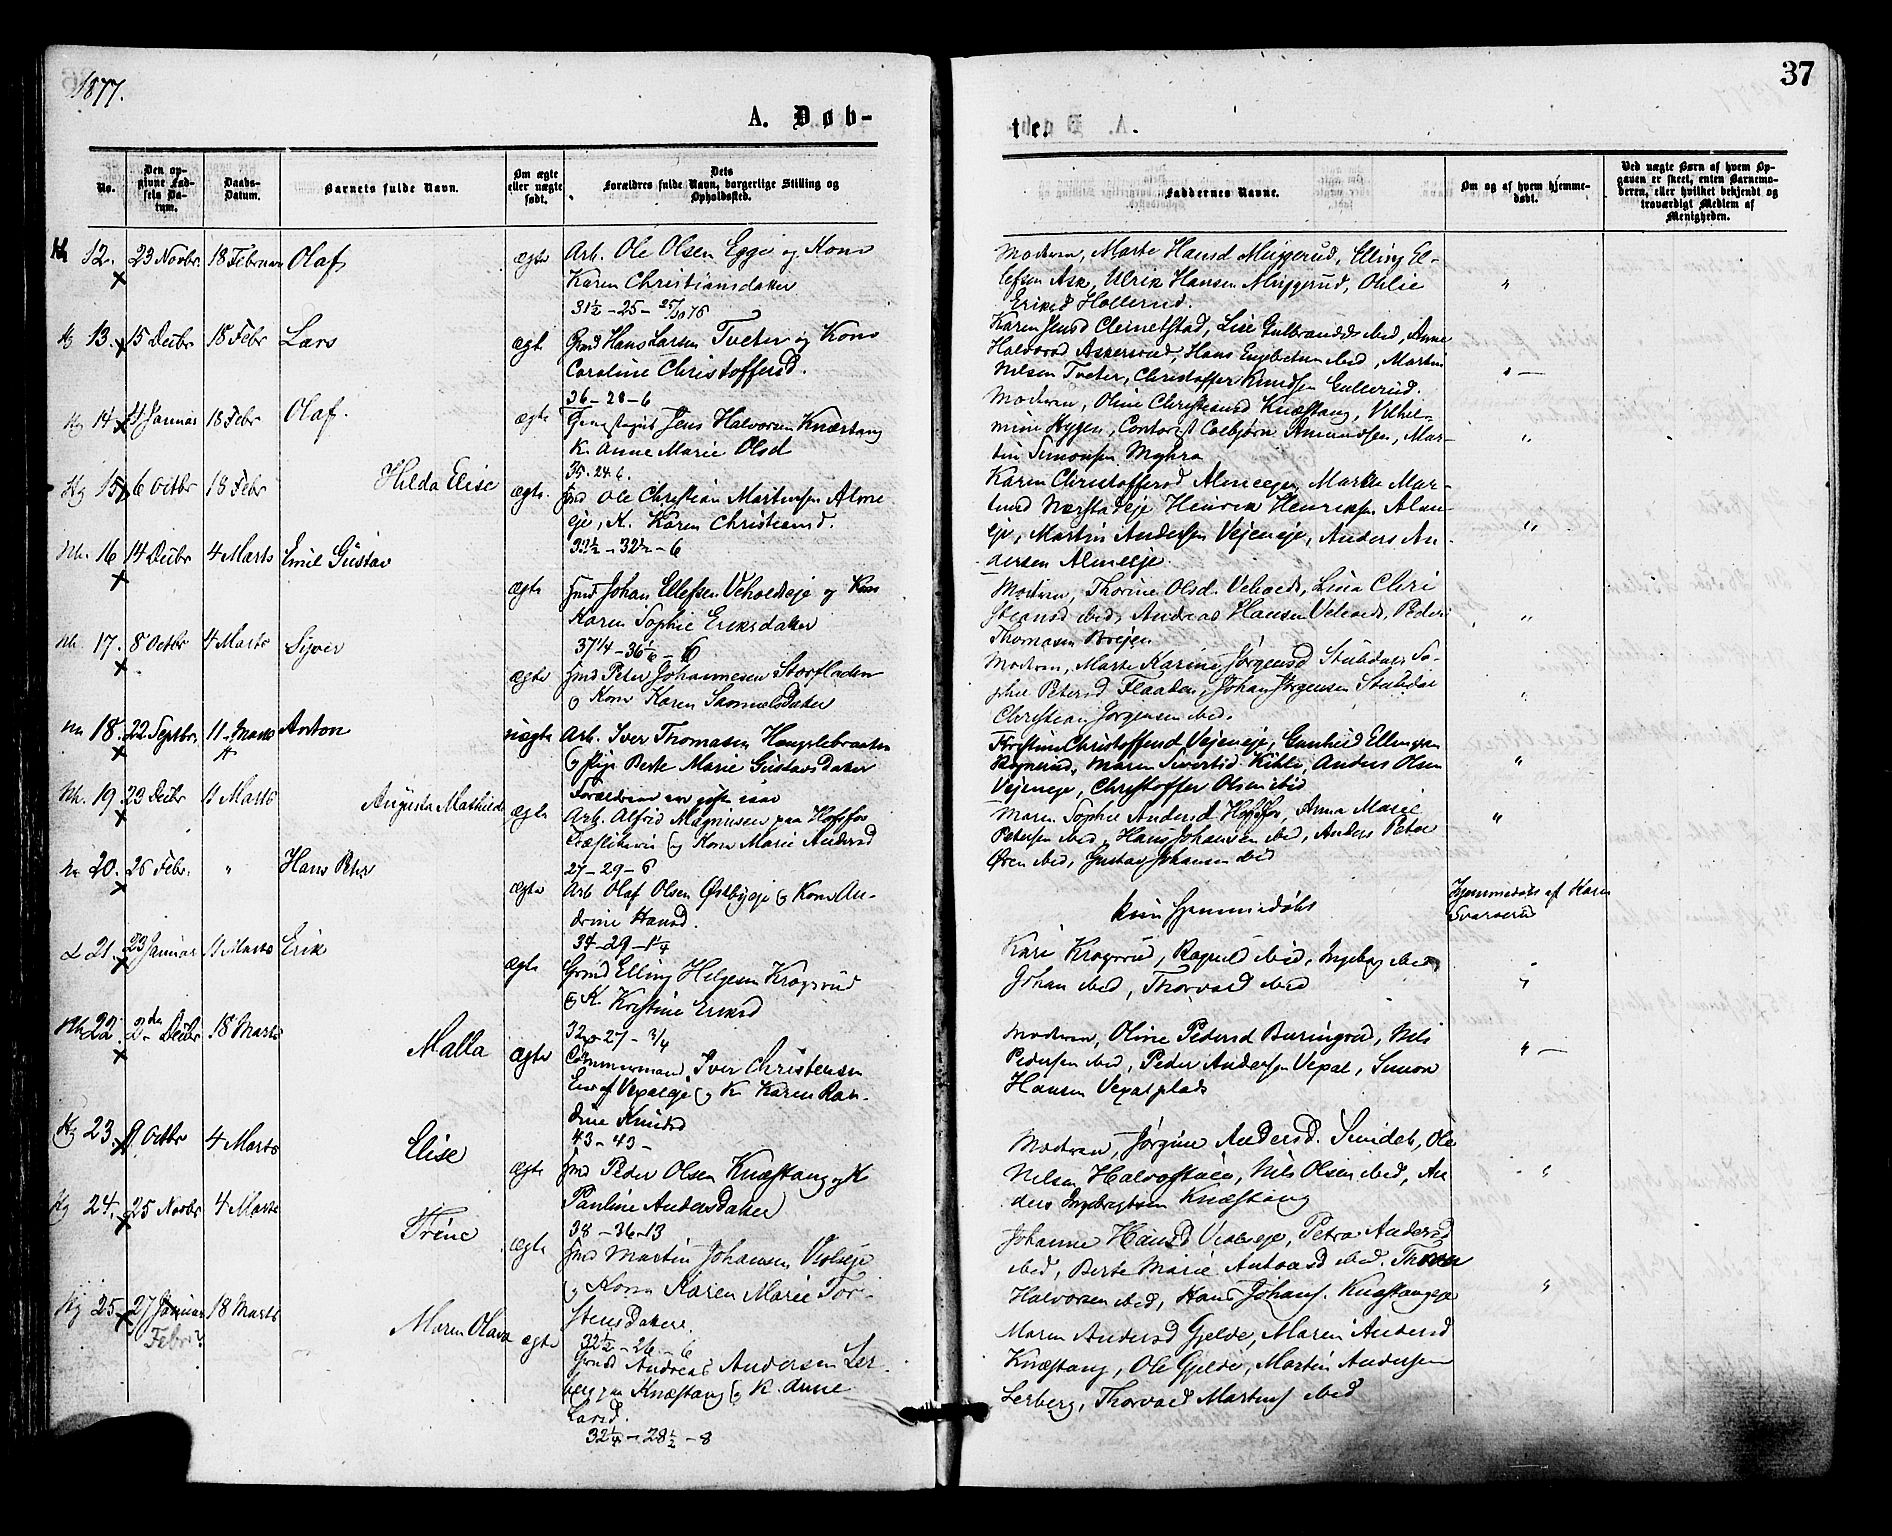 1877.
37
A. Døb-
te.
No.
Den op-
givne Fød-
sels Da-
tum.
Daabs-
Datum.
Barnets fulde Navn.
Om ægte
eller uægte
født.
Dets
Forældres fulde Navn, borgerlige Stilling og
Opholdssted.
Faddernes Navne.
Om og af hvem hjemme-
døbt.
Ved uægte Børn af hvem Op-
gaven er skeet, enten Barnemo-
deren, eller hvilket bekjendt og
troværdigt Medlem af
Menigheden.
12. 23 Novbr. 18 Februar Olaf ægte Arb. Ole Olsen Egge og Kone
Karen Christiansdatter
31½ - 25 - 25/10 76
Moderen, Marte Hansd Muggerud, Elling El-
lefsen Ask, Ulrik Hansen Muggerud, Olelie
Eriksd Hollerud. "
Hg 13. 15 Decbr 18 Febr Lars ægte Gmd Hans Larsen Tveter og Kone
Caroline Christoffersd.
36 - 28 - 6
Karen Jensd Cleinetstad, Lise Gulbrandsd ibid, Anne
Halvorsd Askersrud, Hans Engebretsen ibid, Martin
Nilsen Tveter, Christoffer Knudsen Gullerud. " —
Hg 14. 4 Januar 18 Febr Olaf. ægte Jens Halvorsen Knæstang
K. Anne Marie Olsd
35. 24 6.
Moderen, Oline Christiansd Knæstang, Vilhel-
mine Hygen, Contorist Colbjørn Amundsen, Mar-
tin Simonsen Myhra "
Hg 15. 6 Octbr 18 Febr Hilda Elise ægte. Imd Ole Christian Martinsen Alme-
eje, K. Karen Christiansd.
33½ - 32½ - 6
Karen Christoffersd Almeeje, Marthe Mar-
tinsd Nærstadeje Henrik Henriksen Alme-
eje, Martin Andersen Vejeneje, Anders An-
dersen Almeeje. "
Nh. 16 14 Decbr 4 Marts Emil Gustav ægte Imd Johan Ellefsen Veholdteje og Kone
Karen Sophie Eriksdatter
37¼ - 36 1/6 - 6
Moderen, Thorine Olsd. Veholdt, Lina Chri
stiansd ibid, Andreas Hansen Veholdt, Peder
Thomasen Brejen "
Nh. 17. 8 Octbr 4 Marts Syver ægte Imd Peter Johannesen Storfladen
og Kone Karen Samuelsdatter
Moderen, Marte Karine Jørgensd Stubdal, So-
phie Petersd Flaaden, Johan Jørgensen Stubdal
Christian Jørgensen ibid. "
18. 22 Septbr. 11 Marts Anton uægte Arb. Iver Thomasen Hougslebraaten
og Pige Berte Marie Gustavsdatter
Forældrene
Kristine Christoffersd Vejeneje, Gunhild Ellingsen
Rognerud, Maren Sivertsd Kihle, Anders Olsen
Vejeneje, Christoffer Olsen ibid "
Nh. 19. 23 Decbr 11 Marts Augusta Mathilde ægte Arb. Alfred Magnusen paa Hofsfos
Træsliberi og Kone Marie Andersd
27 - 29 - 6
Maren Sophie Andersd Hofsfos, Anna Marie
Petersen ibid, Hans Johansen ibid, Anders Peter
Øren ibid, Gustav Johansen ibid "
20. 26 Febr. " Hans Peter ægte Arb Olaf Olsen Østbyeje og Kone An-
drine Hansd.
34 - 29 - 1¼
kun hjemmedøbt
Hjemmedøbt af Karen
Svarverud
21. 23 Januar 11 Marts Erik ægte Grmd Elling Helgesen Krogsrud
og K. Kristine Eriksd
32 - 27 - 3/4
Kari Krogsrud, Ragnild ibid, Ingeborg ibid,
Johan ibid, Thorvald ibid "
Nh. 22. 2den Decbr 18 Marts Malla ægte Tømmermand, Iver Christensen
Vexaleje og K. Karen Ran-
dine Knudsd
43 - 43 -
Moderen, Oline Pedersd Buringrud, Nils
Pedersen ibid, Peder Andersen Vexal, Simon
Hansen Vexalplads " —
Hg 23. 9. Octbr 4 Marts Elise ægte Imd Peder Olsen Knæstang og K
Pauline Andersdatter
38 - 36 - 13
Moderen, Jørgine Andersd. Smidet, Ole
Nilsen Nils Olsen ibid, An-
ders Ingebrigtsen Knæstang "
Hg 24. 25 Novbr 4 Marts Trine ægte Imd Martin Johansen Violseje
og Kone Karen Marie Tor-
stensdatter.
32½ - 26 - 6
Johanne Hansd Violseje, Petra Andersd
ibid, Berte Marie Antonsd ibid. Thorer
Halvorsen ibid, Hans Johans. Knæstangeje "
Hg 25. 27 Januar 18 Marts Maren Olava ægte Grmd Andreas Andersen Ler-
berg paa Knæstang og K. Anne
Larsd.
32¼ - 28½ - 8
Febr?
Maren Andersd Gjelde, Maren Andersd
Knæstang, Ole Gjelde, Martin Andersen
Lerberg, Thorvald Martins ibid